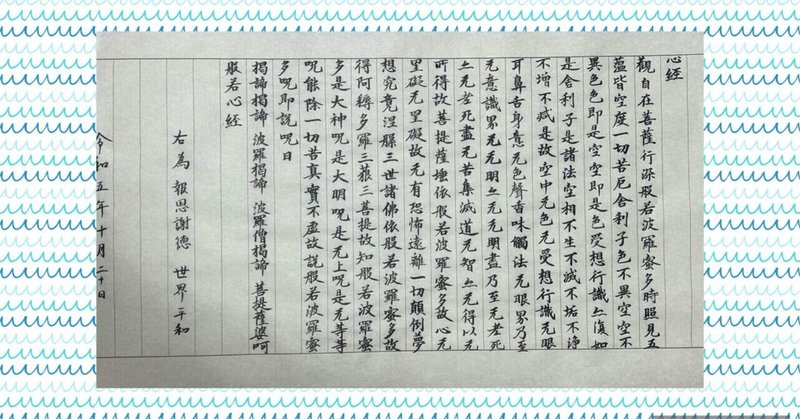 心経
觀自在菩薩行深般若波羅蜜多時照見五
蘊皆空度一切苦厄舎利子色不異空空不
異色色即是空空即是色受想行識亦復如
是舎利子是諸法空相不生不滅不垢不浄
不増不減是故空中无色无受想行識无眼
耳鼻舌身意无色聲香味觸法无眼界乃至
无意識界无无明亦无无明盡乃至无老死
亦无老死盡无苦集滅道无智亦无得以无
所得故菩提薩埵依般若波羅蜜多故心无
罣礙无罣礙故无有恐怖遠離一切顛倒夢
想究竟涅槃三世諸佛依般若波羅蜜多故
得阿耨多羅三藐三菩提故知般若波羅蜜
多是大神呪是大明呪是无上呪是无等等
呪能除一切苦真實不虚故説般若波羅蜜
多呪即説呪曰
揭諦揭諦 波羅揭諦 波羅僧揭諦 菩提薩婆呵
般若心経
右為報恩謝徳 世界平和
令和五年十月二十日